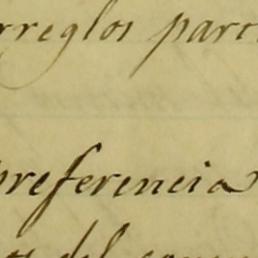 rreglos parc
preferencia
del